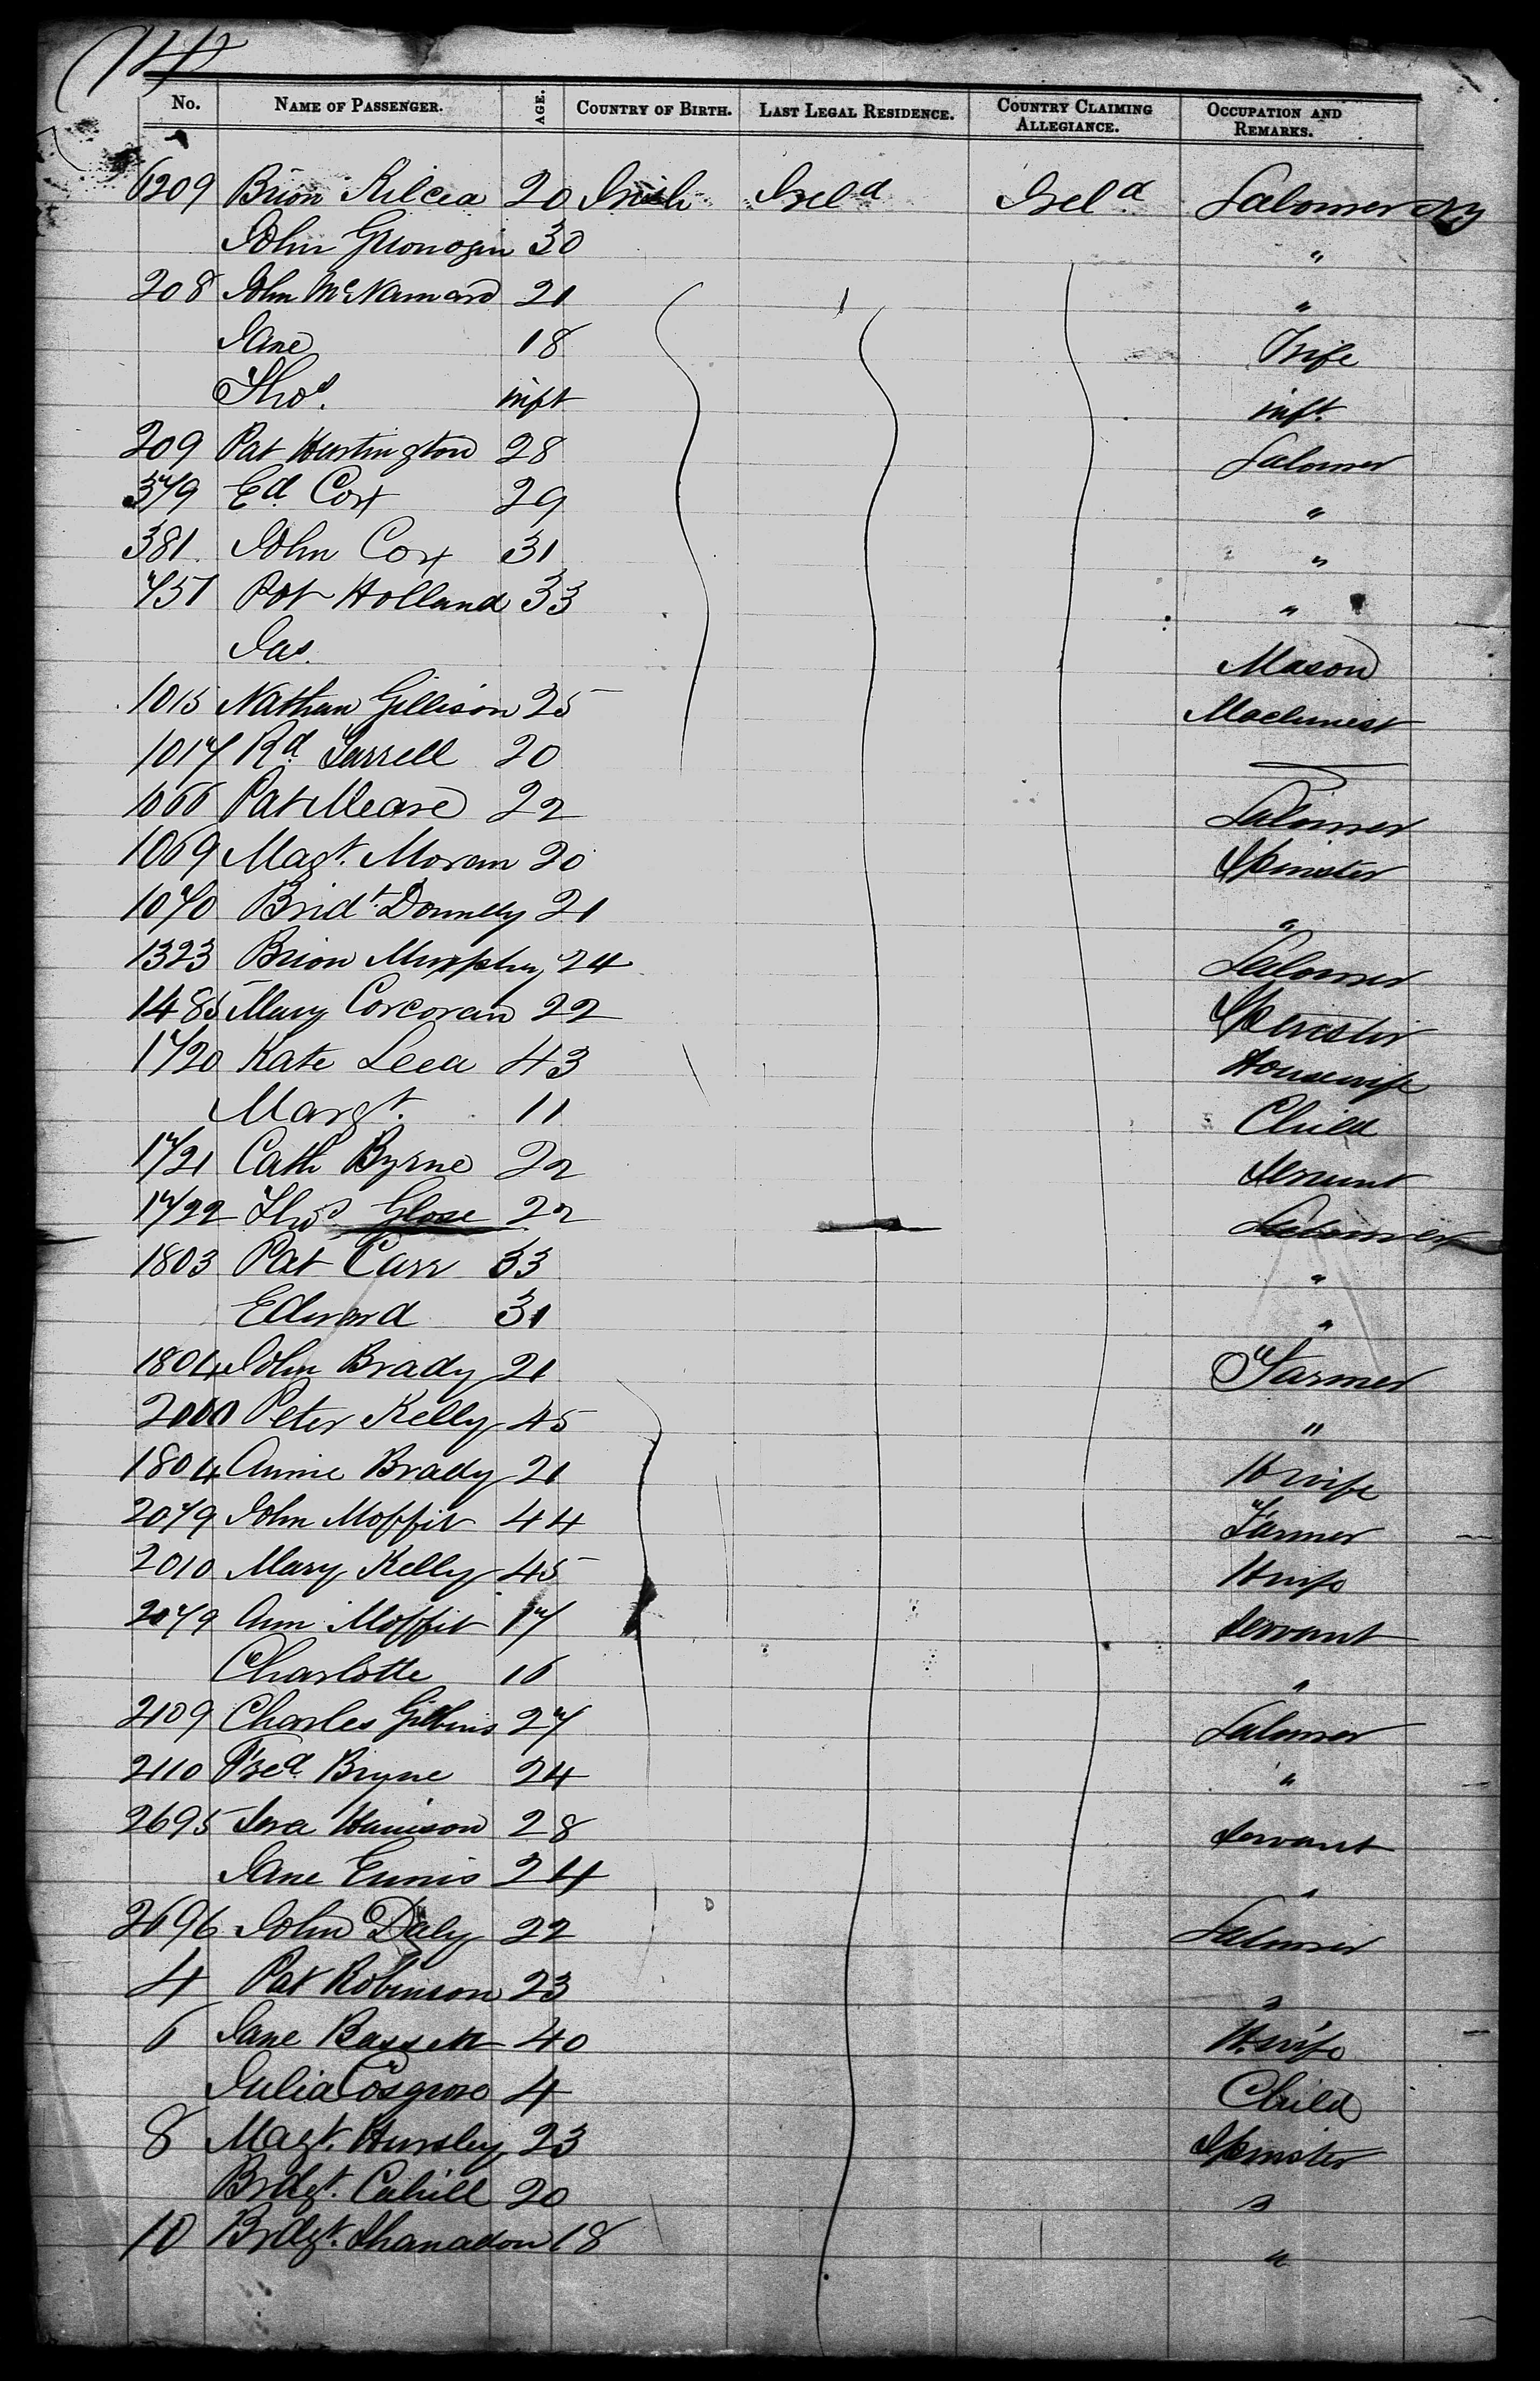 14
No. NAME OF PASSENGER. AGE. COUNTRY OF BIRTH. LAST LEGAL RESIDENCE. COUNTRY CLAIMING ALLEGIANCE. OCCUPATION AND REMARKS.
6209 Brion Kilcea 20 Irish Ireld Ireld Labourer NY
John Gronogin 30 "
208 John McNamara 21 "
Jane 18 Wife
Thos. inft inft.
209 Pat Hartington 28 Labourer
379 Ed. Cox 29 "
381 John Cox 31 "
757 Pat Holland 33 "
Jas. Mason
1015 Nathan Gillison 25 Machinest
1017 Rd. Farrell 20
1066 Pat Meare 22 Labourer
1069 Magt. Moran 20 Spinster
1070 Bridt Donnelly 21 "
1323 Brion Murphy 24 Labourer
1485 Mary Corcoran 22 Spinster
1720 Kate Leea 43 Housewife
Margt. 11 Child
1721 Cath Byrne 22 Servant
1722 Thos Glose 22 Labourer
1803 Pat Carr 33 "
Edward 31 "
1804 John Brady 21 Farmer
2010 Peter Kelly 45 "
1804 Annie Brady 21 H wife
2079 John Moffit 44 Farmer
2010 Mary Kelly 45 H wife
2079 Ann Moffit 17 Servant
Charlotte 16 "
2109 Charles Gibbins 27 Labourer
2110 Fred. Bryne 24 "
2695 Sera Harrison 28 Servant
Jane Ennis 24 "
2696 John Daly 22 Labourer
4 Pat Robinson 23 "
6 Jane Bassett 40 H. wife
Julia Cosgrove 4 Child
8 Magt. Hursley 23 Spinster
Brdgt. Cahill 20 "
10 Brdgt. Shanadon 18 "